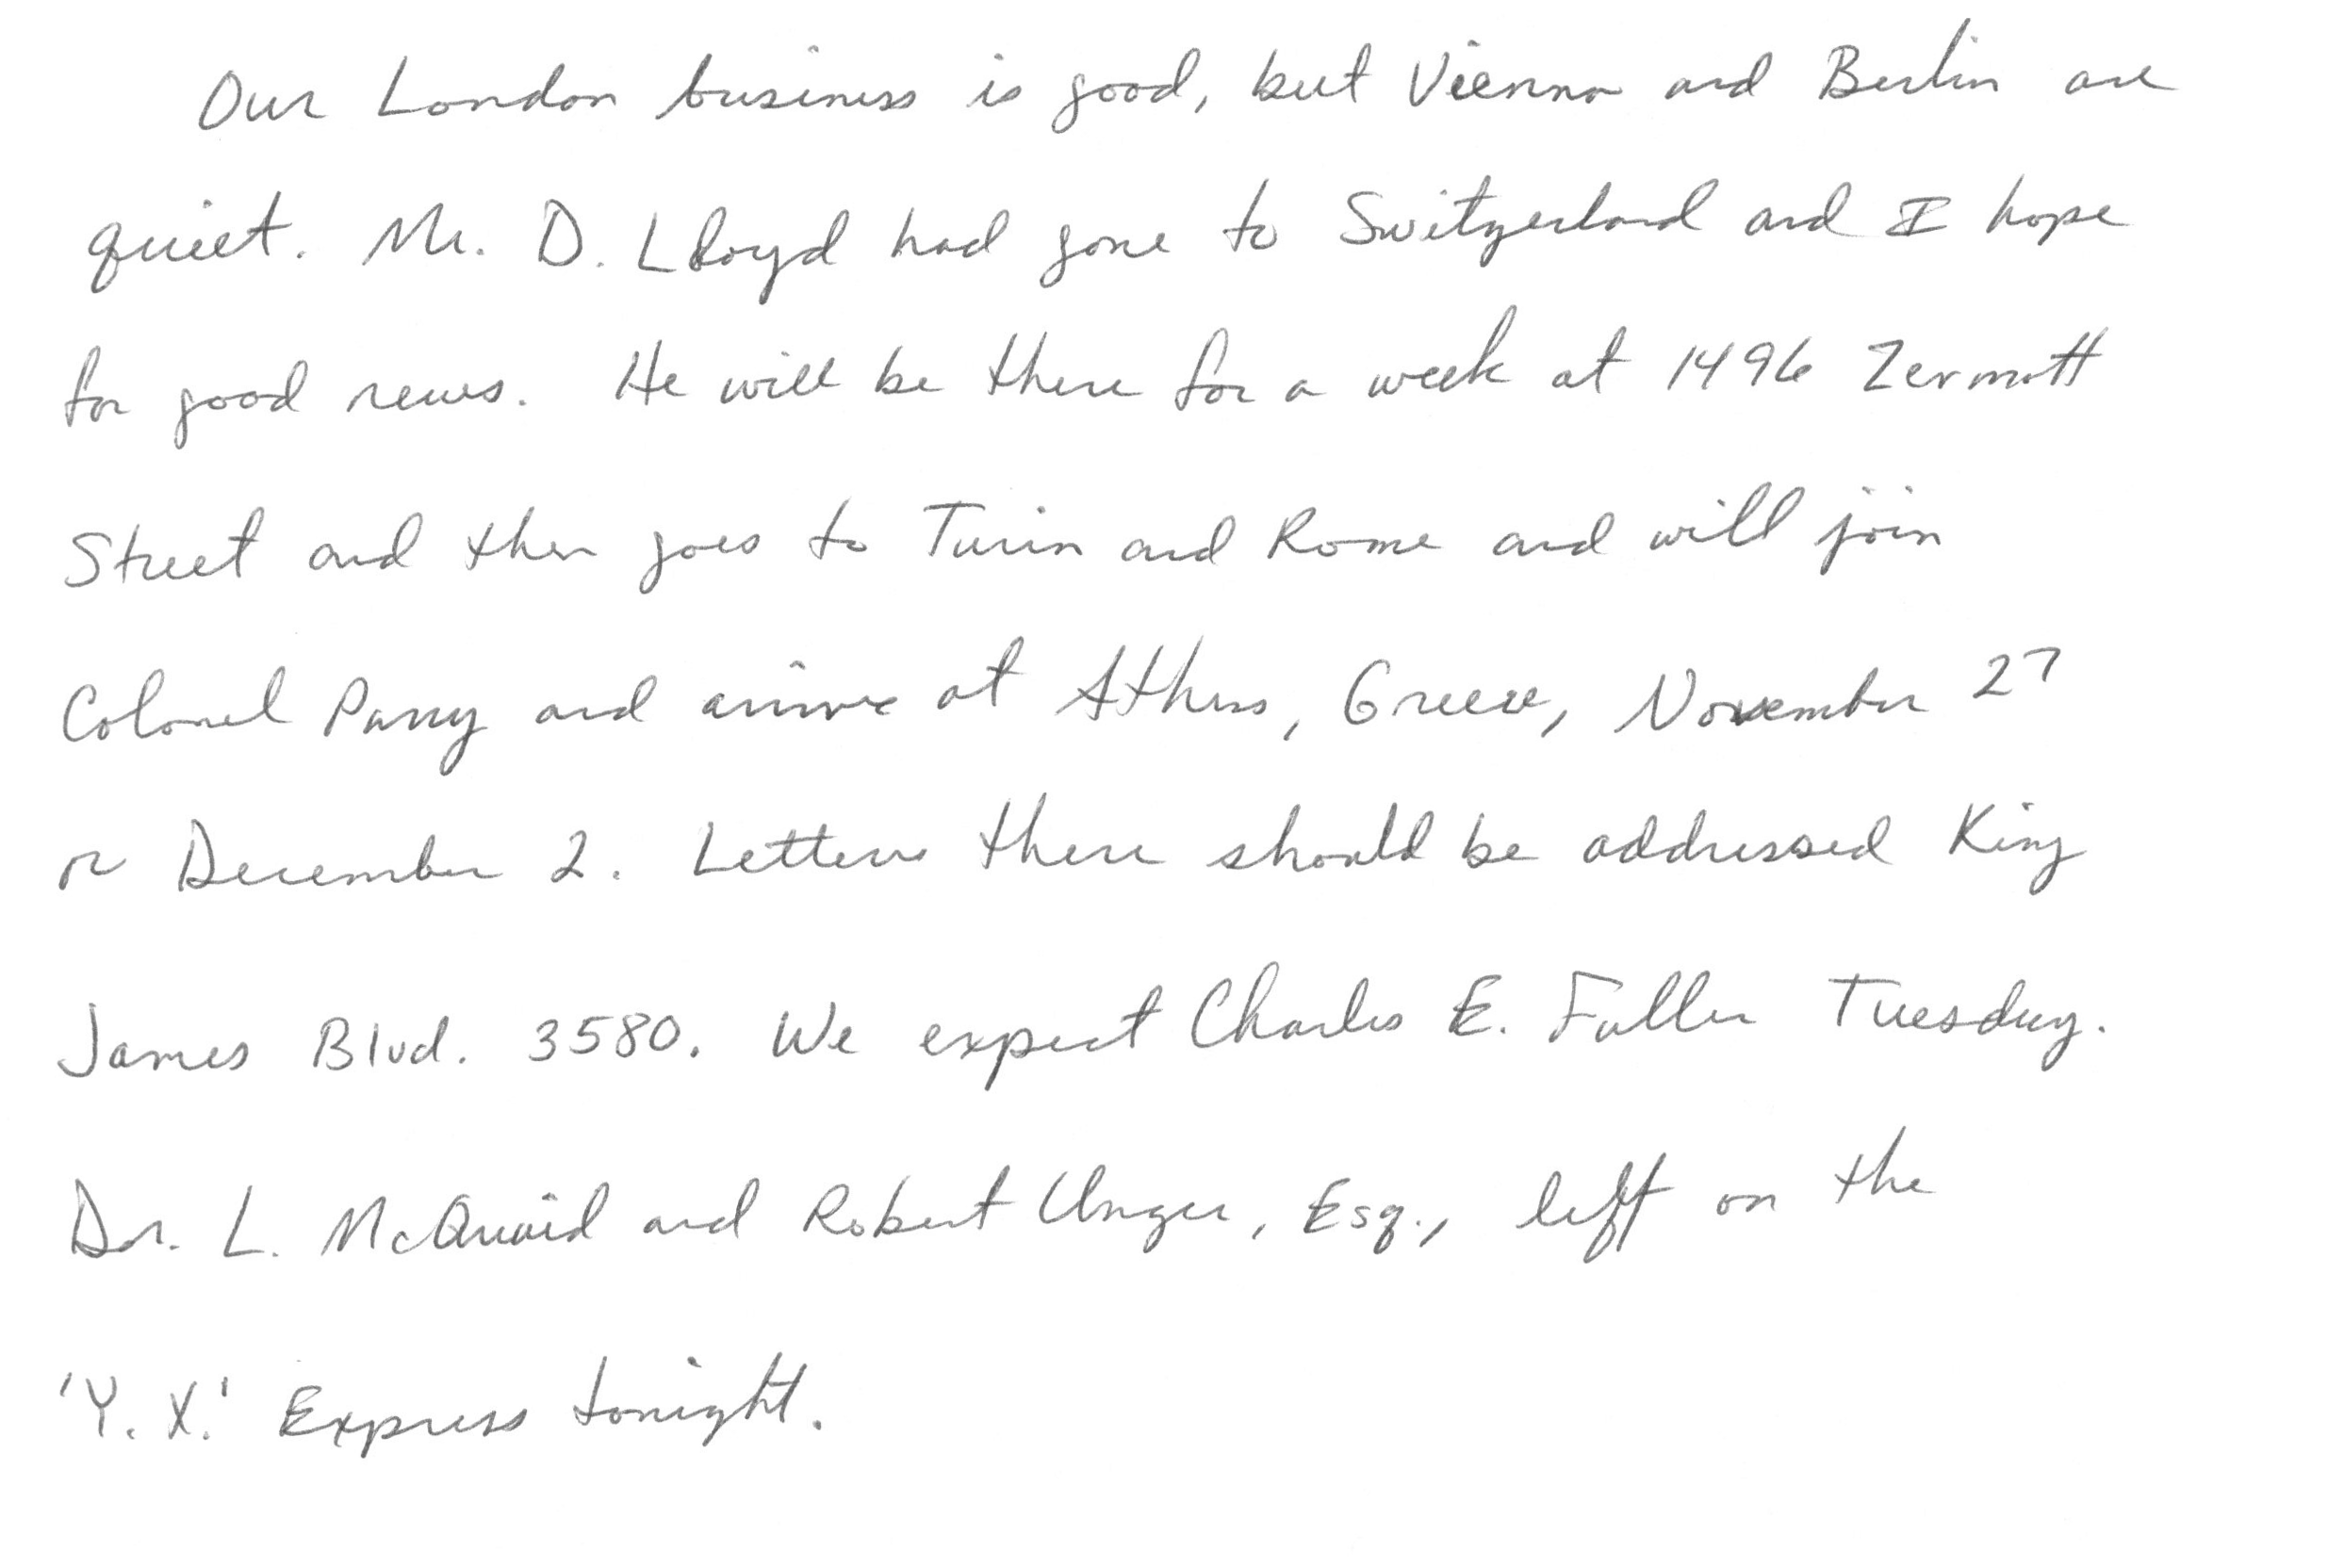 Our London business is good, but Vienna and Berlin are
quiet. Mr. D. Lloyd had gone to Switzerland and I hope
for good news. He will be there for a week at 1496 Zermott
Street and then goes to Turin and Rome and will join
Colonel Parry and arrive at Athens, Greece, November 27
or December 2. Letters there should be addressed King
James Blvd. 3580. We expect Charles E. Fuller Tuesday.
Dr. L. McQuaid and Robert Unger, Esq., left on the
'Y. X.' Express tonight.